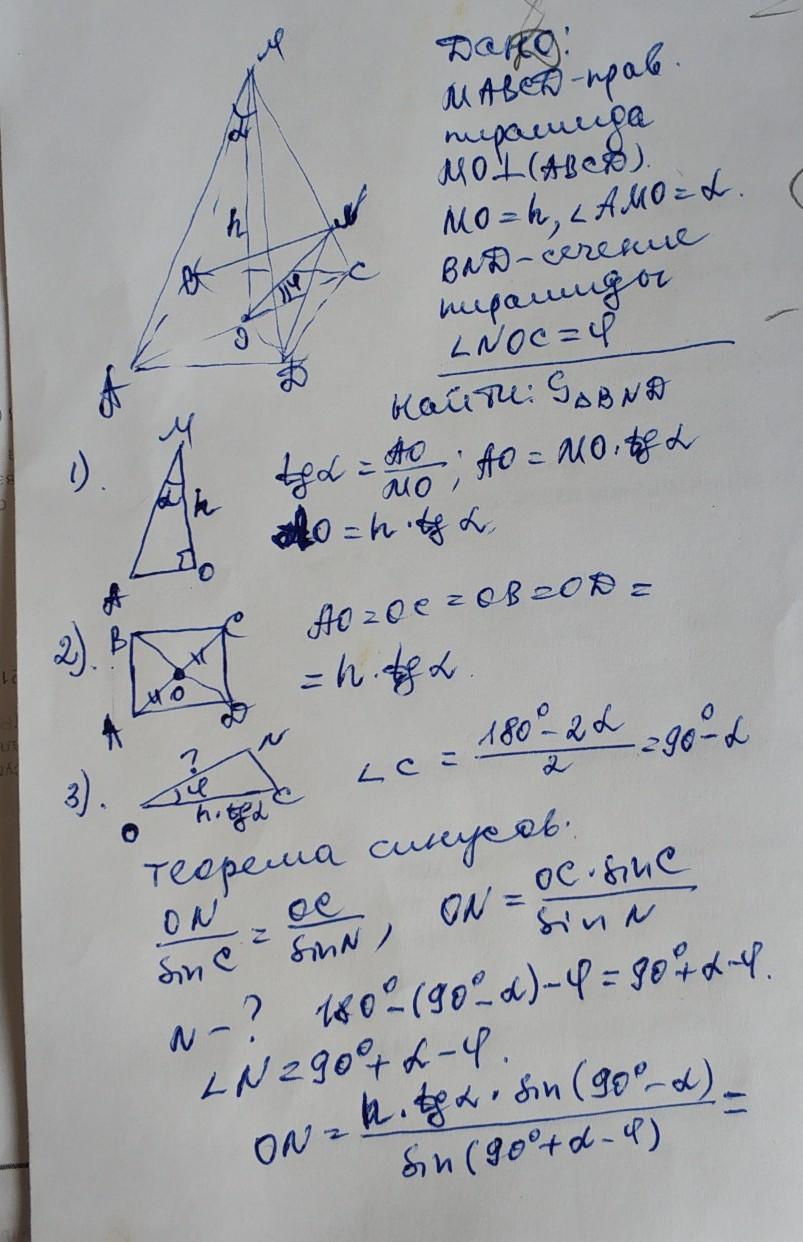 M
α
h
N
B
φ
C
O
A
D
Дано:
MABCD - прав.
пирамида
MO⊥(ABCD).
MO = h, ∠AMO = α.
BND - сечение
пирамиды
∠NOC = φ
Найти: S△BND
1).
M
α
h
A
O
tg α = AO/MO ; AO = MO · tg α
AO = h · tg α
2).
B
C
O
A
D
AO = OC = OB = OD =
= h · tg α.
3).
?
N
φ
h · tg α
C
O
∠C = (180° - 2α)/2 = 90° - α
Теорема синусов.
ON/sin C = OC/sin N , ON = OC · sin C/sin N
N - ? 180° - (90° - α) - φ = 90° + α - φ.
∠N = 90° + α - φ.
ON = h · tg α · sin(90° - α)/sin(90° + α - φ) =